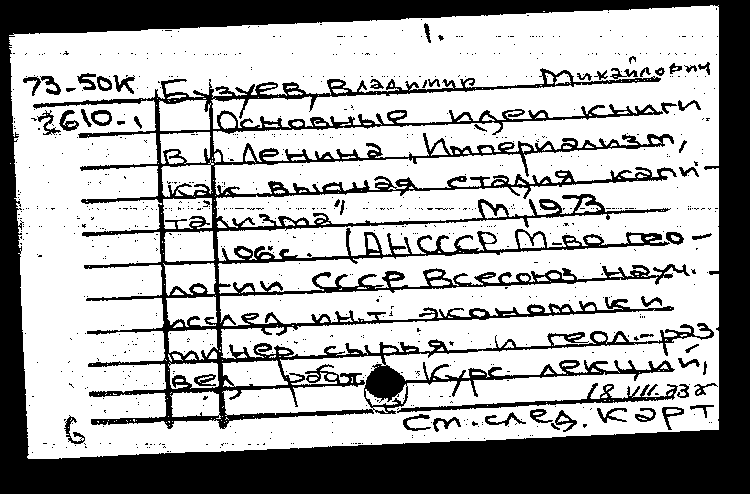 1.
73-50К Бузуев, Владимир Михайлович
2610-1 Основные идеи книги
В.И. Ленина „Империализм,
как высшая стадия капи-
тализма". М., 1973.
106с. (АНСССР М-во гео-
логии СССР Всесоюз науч.-
исслед. ин-т экономики
минер. сырья и геол.-раз-
вед. работ Курс лекций,
18 VII.73г
6 См. след. карт